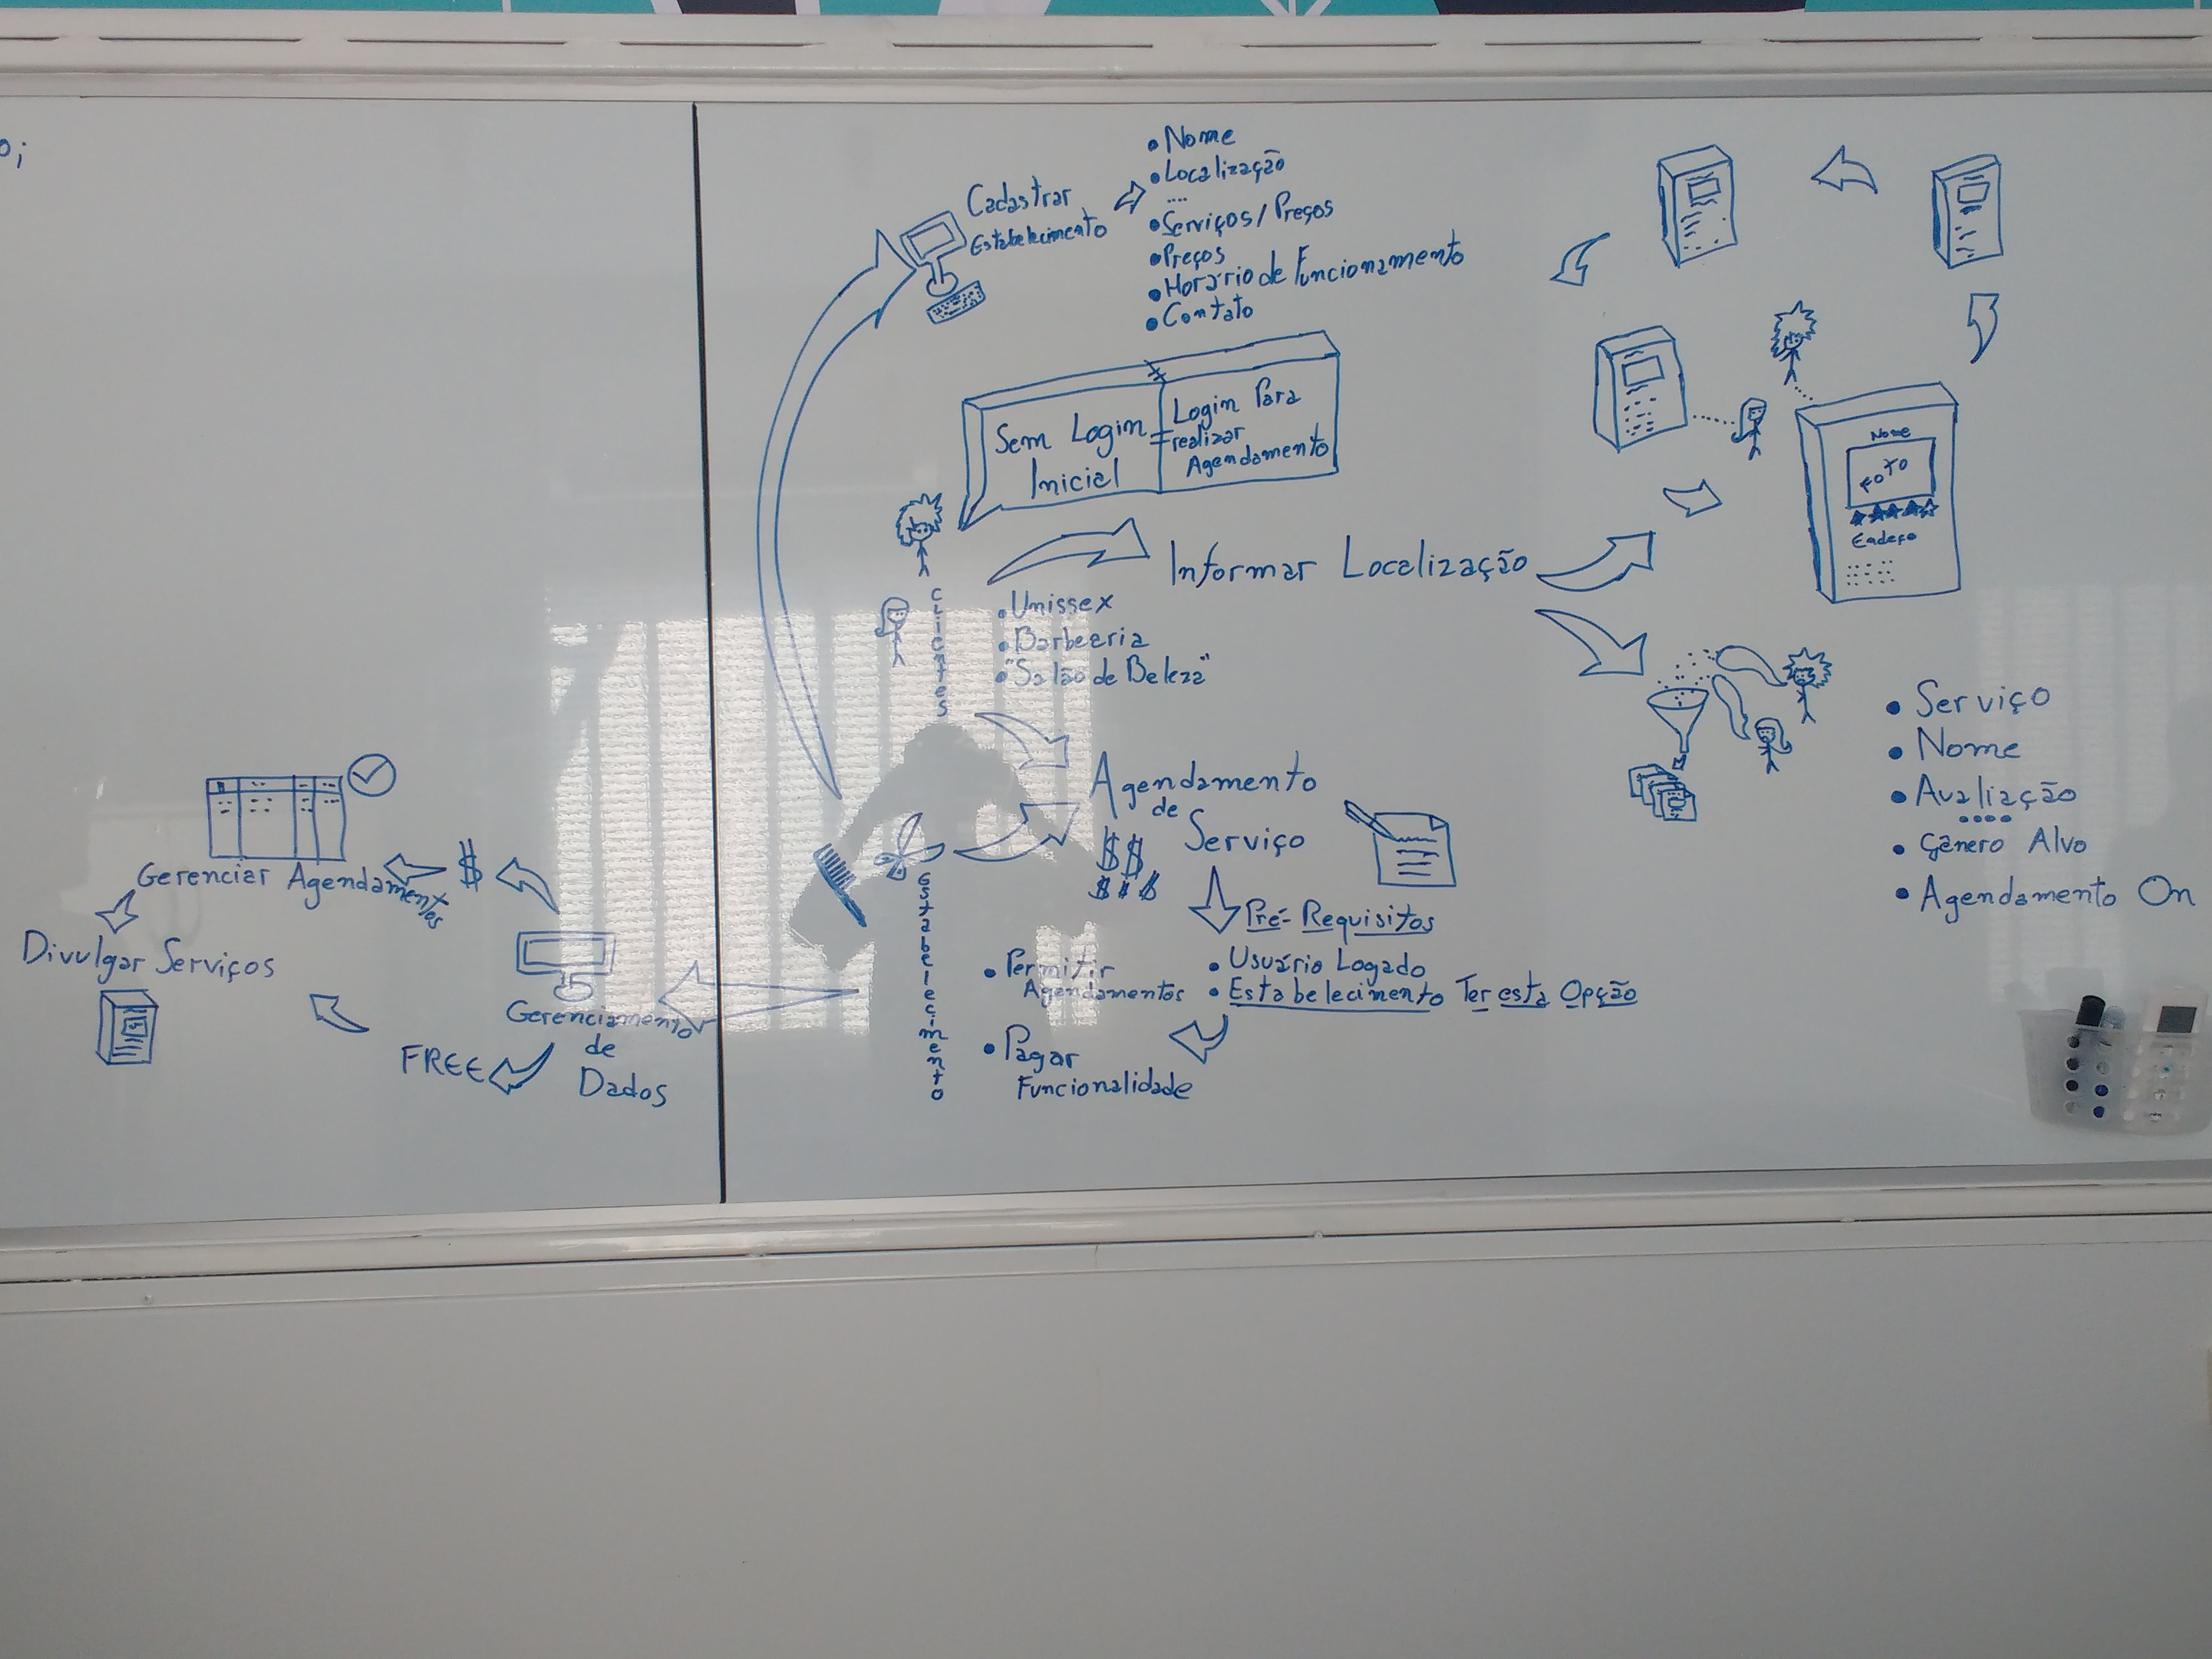 o;
Cadastrar
Estabelecimento
• Nome
• Localização
....
• Serviços / Preços
• Preços
• Horário de Funcionamento
• Contato
Sem Login
Inicial
Login Para
realizar
Agendamento
Clientes
Informar Localização
• Unissex
• Barbearia
• "Salão de Beleza"
Nome
FOTO
Endeço
• Serviço
• Nome
• Avaliação
....
• Gênero Alvo
• Agendamento On
Agendamento
de
Serviço
$$
$$$
Pré-Requisitos
• Usuário Logado
• Estabelecimento Ter esta Opção
• Permitir
Agendamentos
• Pagar
Funcionalidade
Estabelecimento
Gerenciamento
de
Dados
$
Gerenciar Agendamentos
FREE
Divulgar Serviços